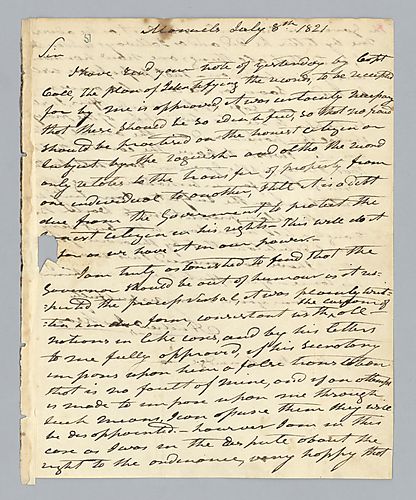 Manuels July 8th 1821
Sir
I have recd your note of yesterday by Capt
Call, the plan of Identifying the records to be receipted
for by me is approved, it was certainly necessary
that there should be so identified, so that no fraud
should be practised on the honest citizen or
Subject by the roguish and altho the record
only relates to the transfer of property from
one individual to another, still it is a debt
due from the Government, to protect the
honest citizen in his rights This will do it
far as we have it in our power
I am truly astonished to find that the
Governor should be out of humour as it re-
spects the process verbal, it was precisely writ-
ten in due form, consistant with the custom of
nations in like cases, and by his letters
to me fully approved, if his secretary
impose upon him a false translation
that is no fault of mine, and if an attempt
is made to impose upon me through
such means, I can assure them they will
be disappointed however I am in this
case as I was in the dispute about the
right to the ordinance, very happy that